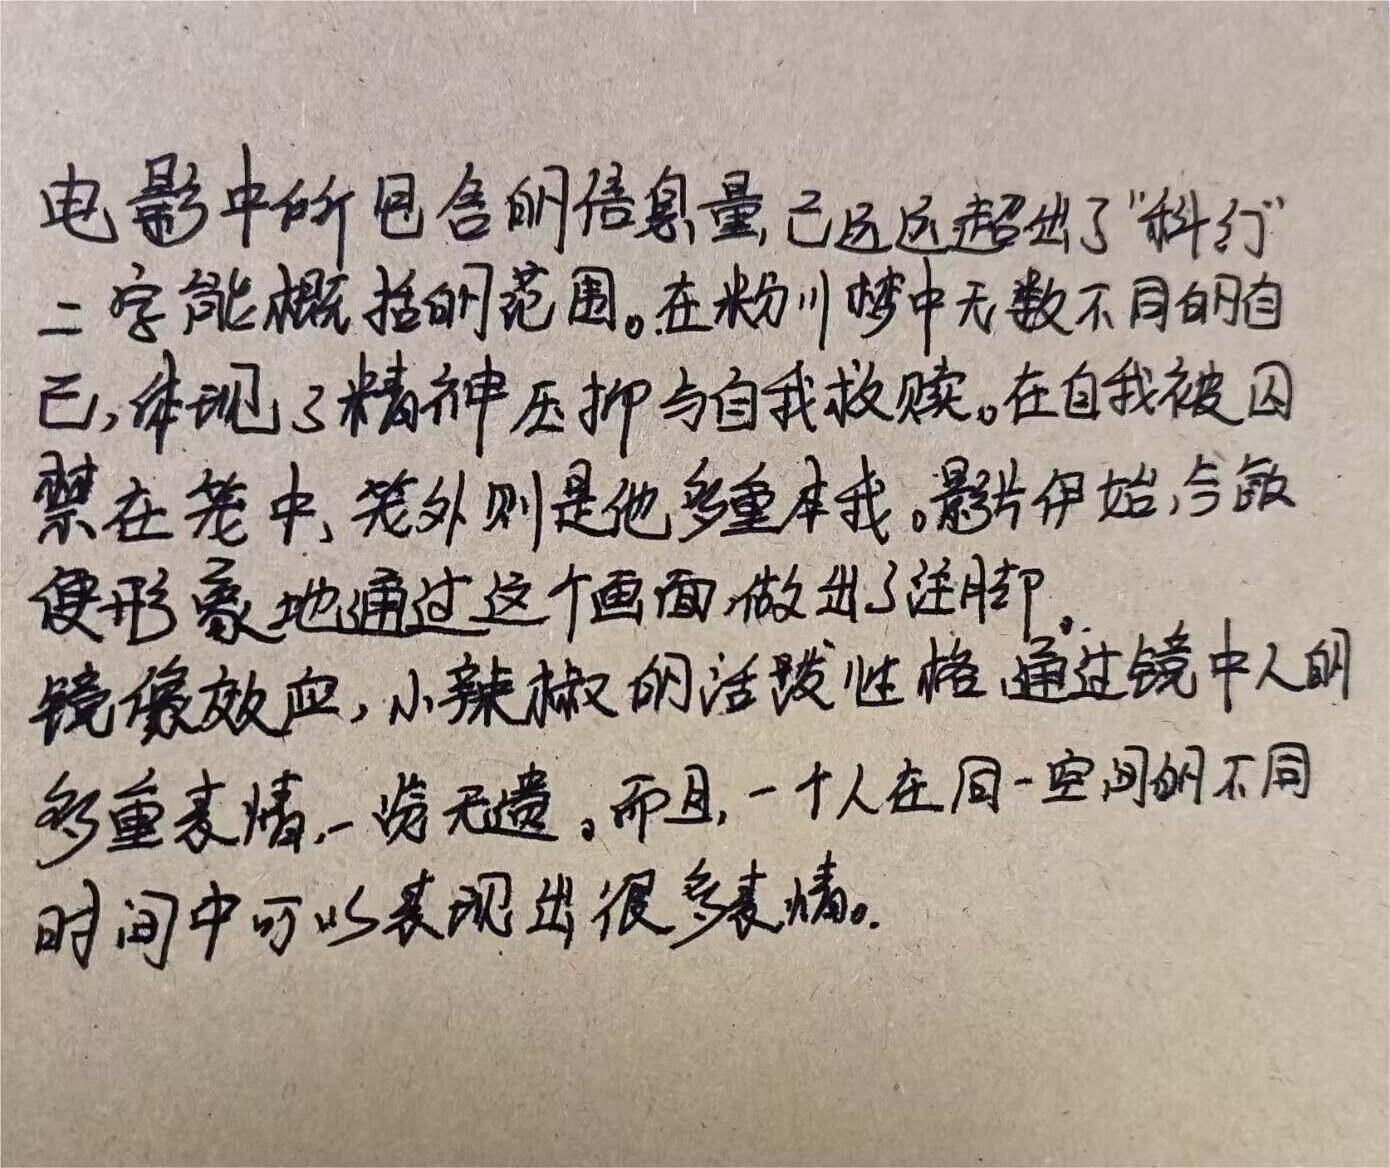 电影中所包含的信息量,已远远超出了"科幻"
二字能概括的范围。在粉川梦中无数不同的自
己,体现了精神压抑与自我救赎。在自我被囚
禁在笼中,笼外则是他多重本我。影片伊始,今敏
便形象地通过这个画面,做出了注脚。
镜像效应,小辣椒的活泼性格,通过镜中人的
多重表情,一览无遗。而且,一个人在同一空间的不同
时间中可以表现出很多表情。